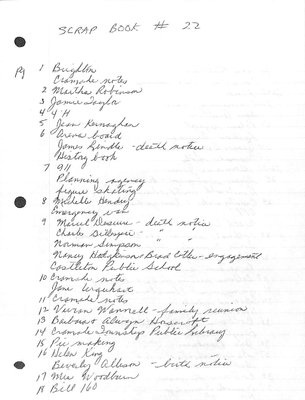 SCRAP BOOK # 22
Pg 1 Brighton
Cramahe notes
2 Martha Robinson
3 Jamie Taylor
4 4 H
5 Jean Kernaghan
6 Arena board
James - death notice
History book
7 911
Planning agency
figure skating
8 Michelle Hendry
Emergency van
9 Merrill - death notice
Charles Gillespie " "
Norman Simpson " "
Nancy Hodgkinson Brad - engagement
Castleton Public School
10 Cramahe notes
Jane Urquhart
11 Cramahe notes
12 Vernon Wannell - family reunion
13
14 Cramahe Township Public Library
15 Pie making
16 Helen King
Beverly Allison - birth notice
17 Mia Woodburn
18 Bill 160